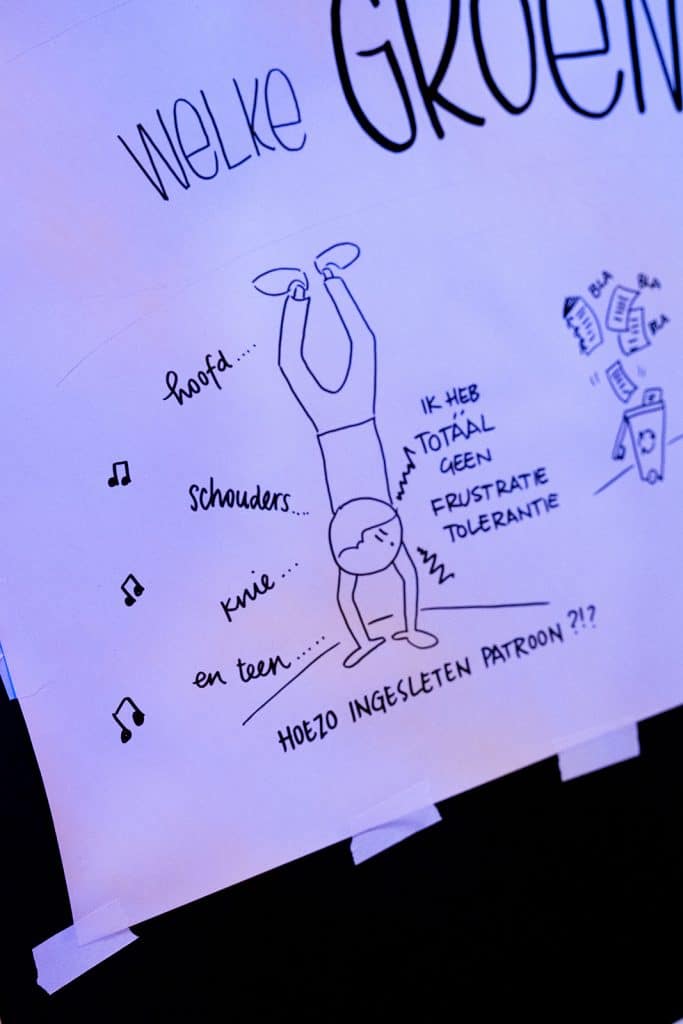 WELKE GROEN
BLA
BLA
BLA
hoofd....
IK HEB
TOTÄÄL
GEEN
FRUSTRATIE
TOLERANTIE
schouders...
knie...
en teen.....
HOEZO INGESLETEN PATROON ?!?